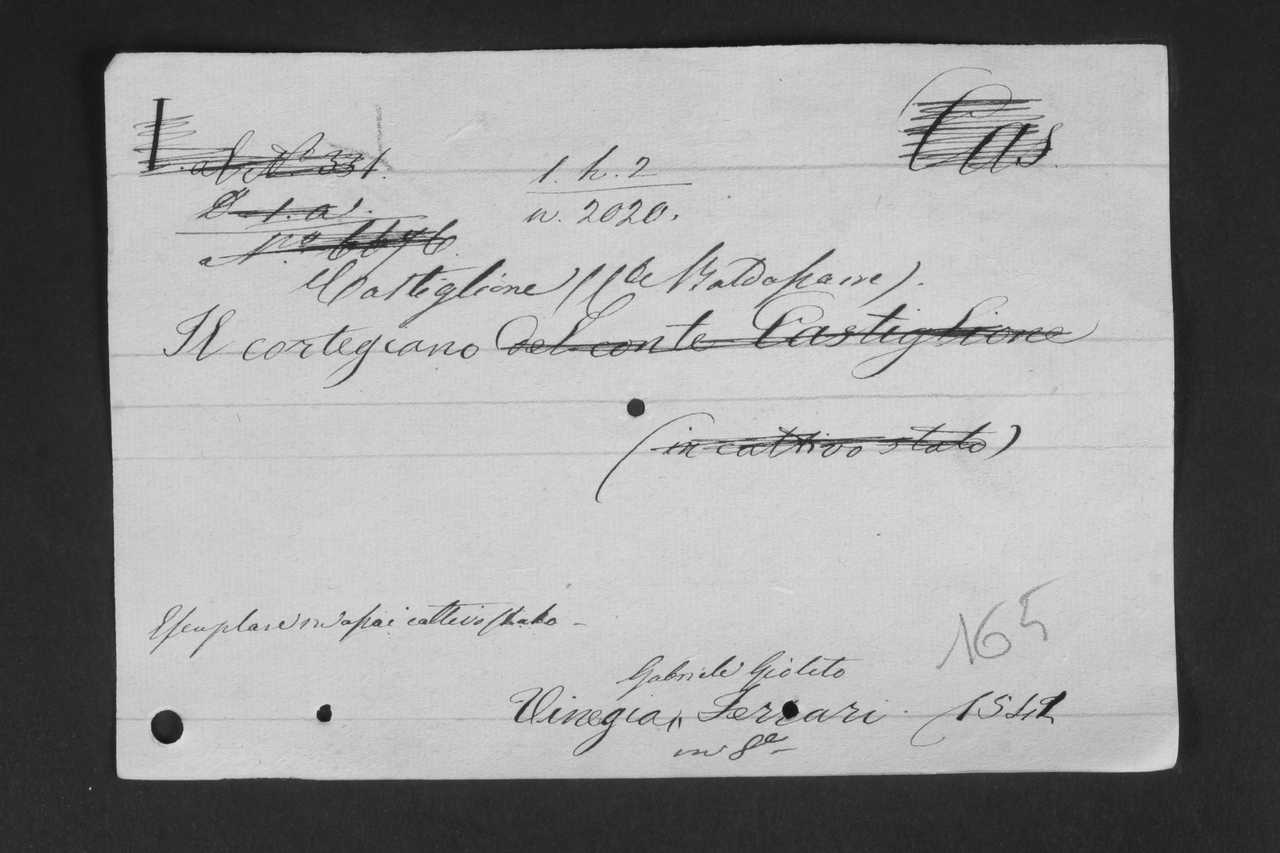 Cas
ab N. 331.
D 1. a.
1. h. 2
N.º 6676
n. 2020.
Castiglione (Cte Baldassare).
Il cortegiano del conte Castiglione
(in cattivo stato)
Esemplare in assai cattivo stato
165
Gabriele Giolito
Vinegia, Ferrari. 1542
in 8º